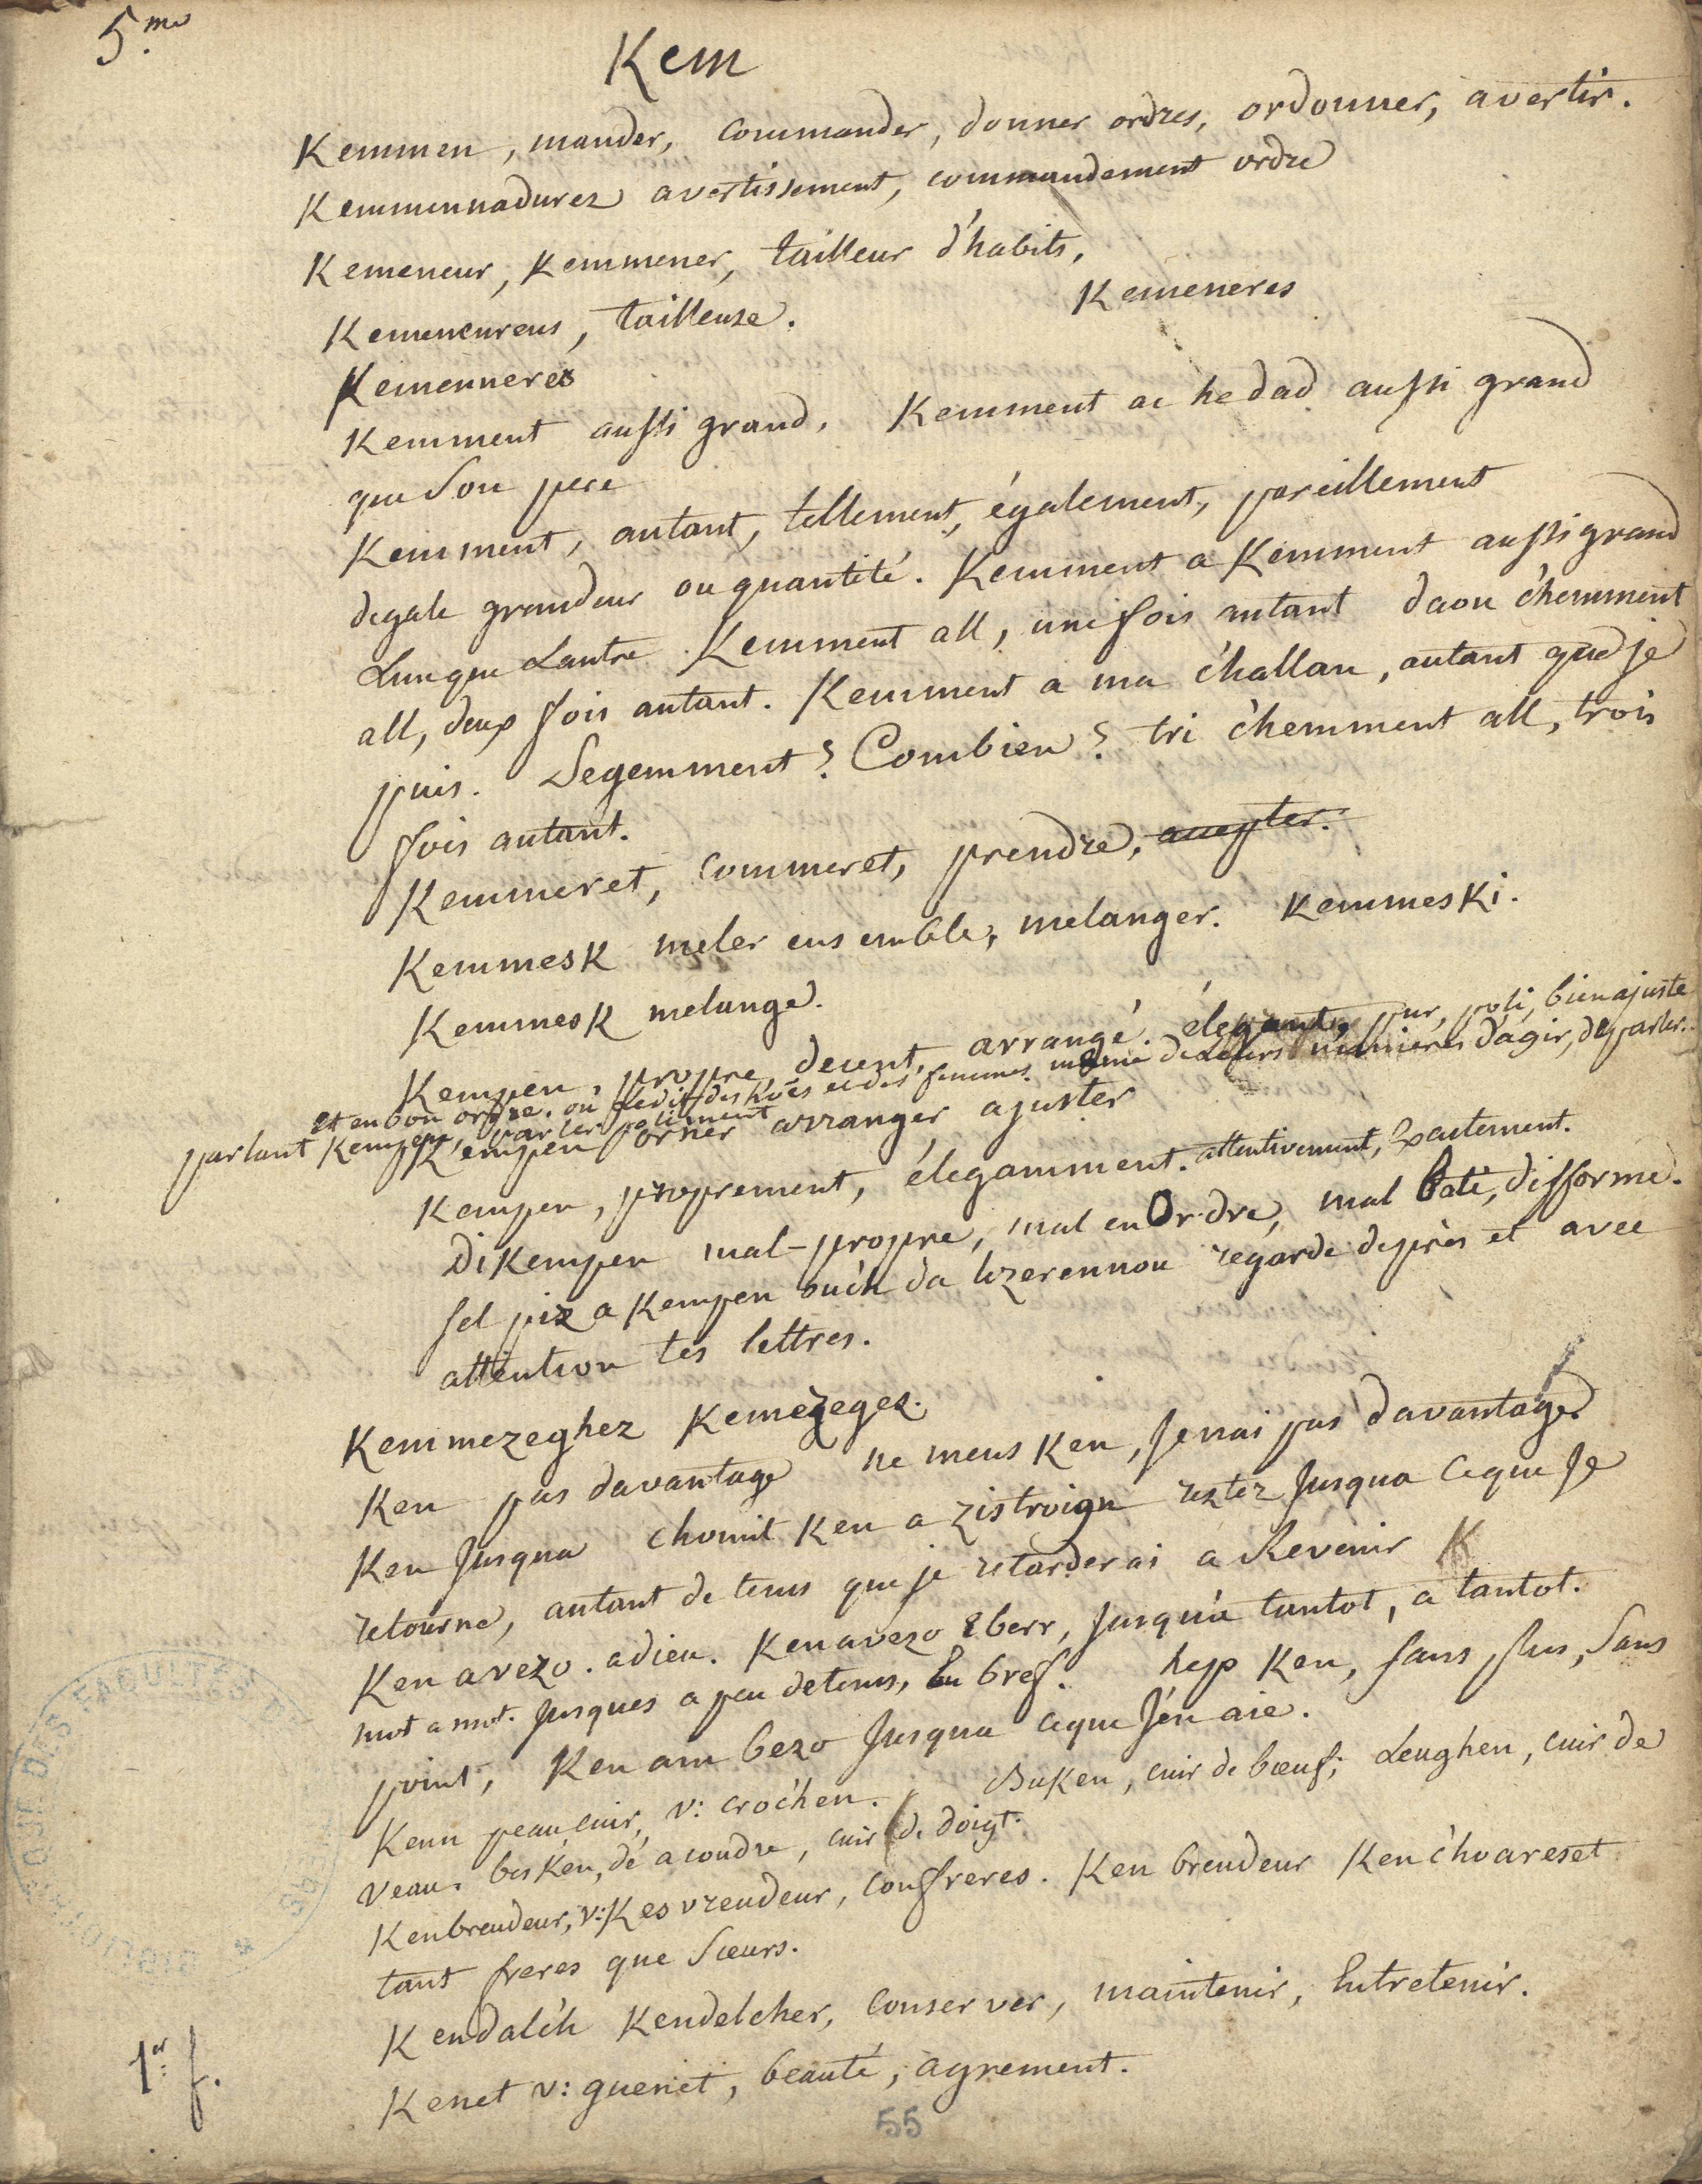 5.me
Kem
Kemmen, mander, commander, donner ordres, ordonner, avertir.
Kemmennadurez avertissement, commandement ordre
Kemeneur, Kemmener, tailleur d'habits,
Kemeneures, tailleuse. Kemeneres
Kemenneres
Kemment aussi grand, Kemment ac he dad aussi grand
que Son pere
Kemment, autant, tellement, également, pareillement
degale grandeur ou quantité. Kemment a Kemment aussi grand
Lun que Lautre. Kemment all, une fois autant daou c'hemment
all, deux fois autant. Kemment a ma c'hallan, autant que je
puis. Pegemment? Combien? tri c'hemment all, trois
fois autant.
Kemmeret, commeret, prendre, accepter.
Kemmesk meler ensemble, melanger. Kemmeski.
Kemmesk melange.
Kempen, propre, decent, arrangé. élegant, pur, poli, bien ajuste
et en bon ordre. on le dit des hoes et des femmes. meme de Leurs manieres d'agir, de parler.
parlant Kempen, parler poliment
Kempen orner arranger ajuster
Kempen, proprement, élegamment. attentivement, Exactement.
Dikempen mal-propre, mal en Ordre, mal bati, difforme.
sel piz a Kempen ouc'h da lizerennou regarde deprès et avec
attention tes lettres.
Kemmezeghez Kemezeger.
Ken pas davantage ne meus Ken, Je nai pas davantage
Ken Jusqua chomit Ken a zistroign restez Jusqua ceque Je
retourne, autant de tems que je retarderai a Revenir K
Ken avezo. adieu. Kenavezo Eberr, Jusqu'a tantot, a tantot.
mot a mot. Jusques a peu detems, En bref. hep Ken, sans plus, Sans
point, Ken am bezo Jusqua ceque J'en aie.
Kenn peau cuir, v: croc'hen. Buken, cuir de bœuf; Leughen, cuir de
veau. besken, dé a coudre, cuir de doigt.
Kenbreudeur, v: Kesvreudeur, confreres. Ken breudeur Ken c'hoareset
tant freres que Sœurs.
Kendalc'h Kendelcher, conserver, maintenir, Entretenir.
Kenet v: guenet, beauté, agrement.
1er f.
55